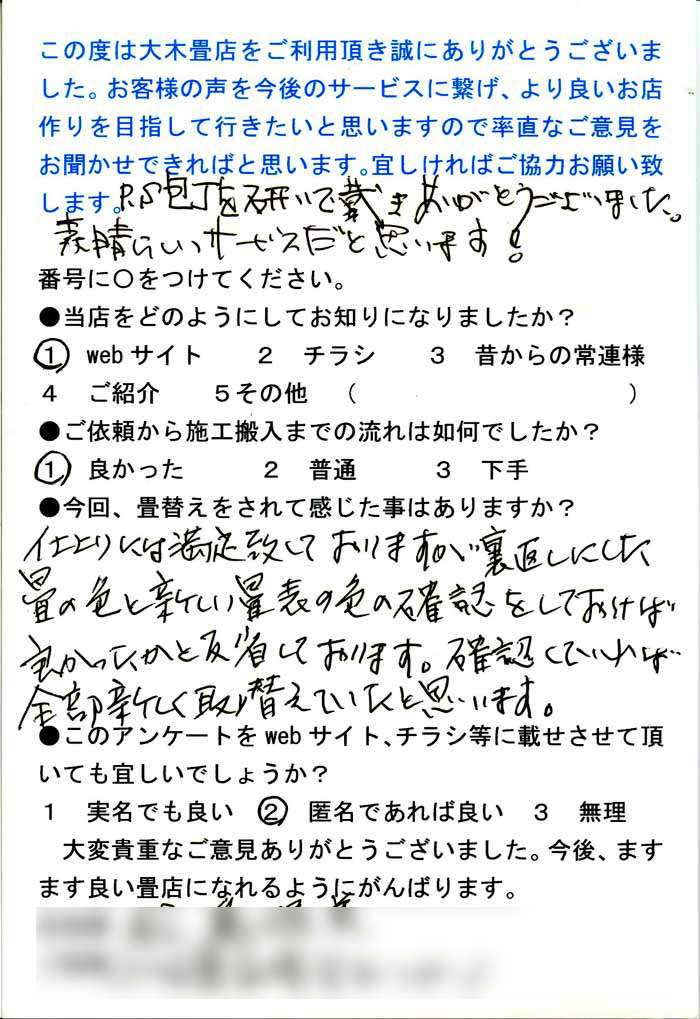 この度は大木畳店をご利用頂き誠にありがとうございま
した。お客様の声を今後のサービスに繋げ、より良いお店
作りを目指して行きたいと思いますので率直なご意見を
お聞かせできればと思います。宜しければご協力お願い致
します。
P.S包丁を研いで戴きありがとうございました。
素晴らしいサービスだと思います!
番号に〇をつけてください。
●当店をどのようにしてお知りになりましたか?
① webサイト 2 チラシ 3 昔からの常連様
4 ご紹介 5その他 ( )
●ご依頼から施工搬入までの流れは如何でしたか?
① 良かった 2 普通 3 下手
●今回、畳替えをされて感じた事はありますか?
仕上りには満足致しておりますが裏返しにした
畳の色と新しい畳表の色の確認をしておけば
良かったかと反省しております。確認していれば
全部新しく取り替えていたと思います。
●このアンケートをwebサイト、チラシ等に載せさせて頂
いても宜しいでしょうか?
1 実名でも良い ② 匿名であれば良い 3 無理
大変貴重なご意見ありがとうございました。今後、ます
ます良い畳店になれるようにがんばります。